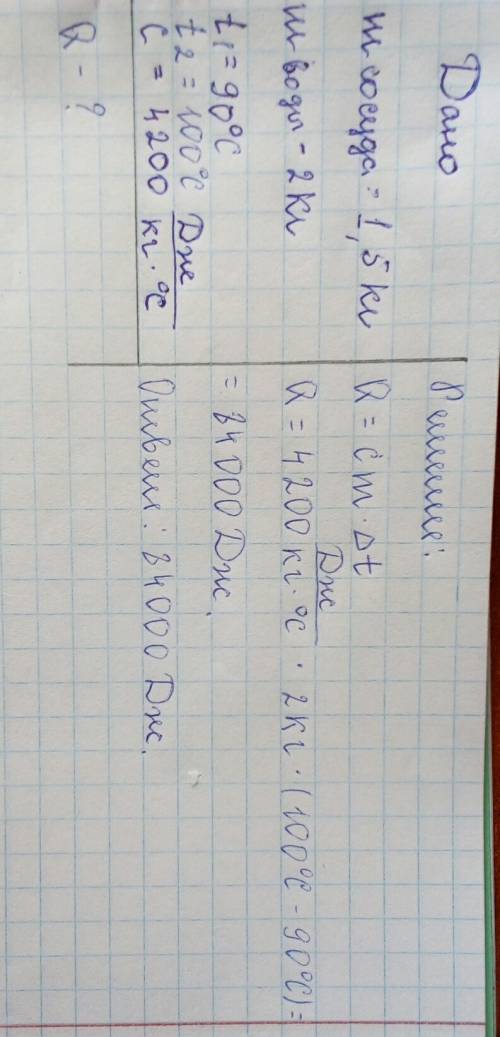 Дано
m сосуда = 1,5 кг
m воды - 2 кг
t₁ = 90°C
t₂ = 100°C
C = 4200 Дж/кг·°C
Q - ?
Решение:
Q = cm·Δt
Q = 4200 Дж/кг·°C · 2кг · (100°C - 90°C) =
= 84000 Дж.
Ответ: 84000 Дж.